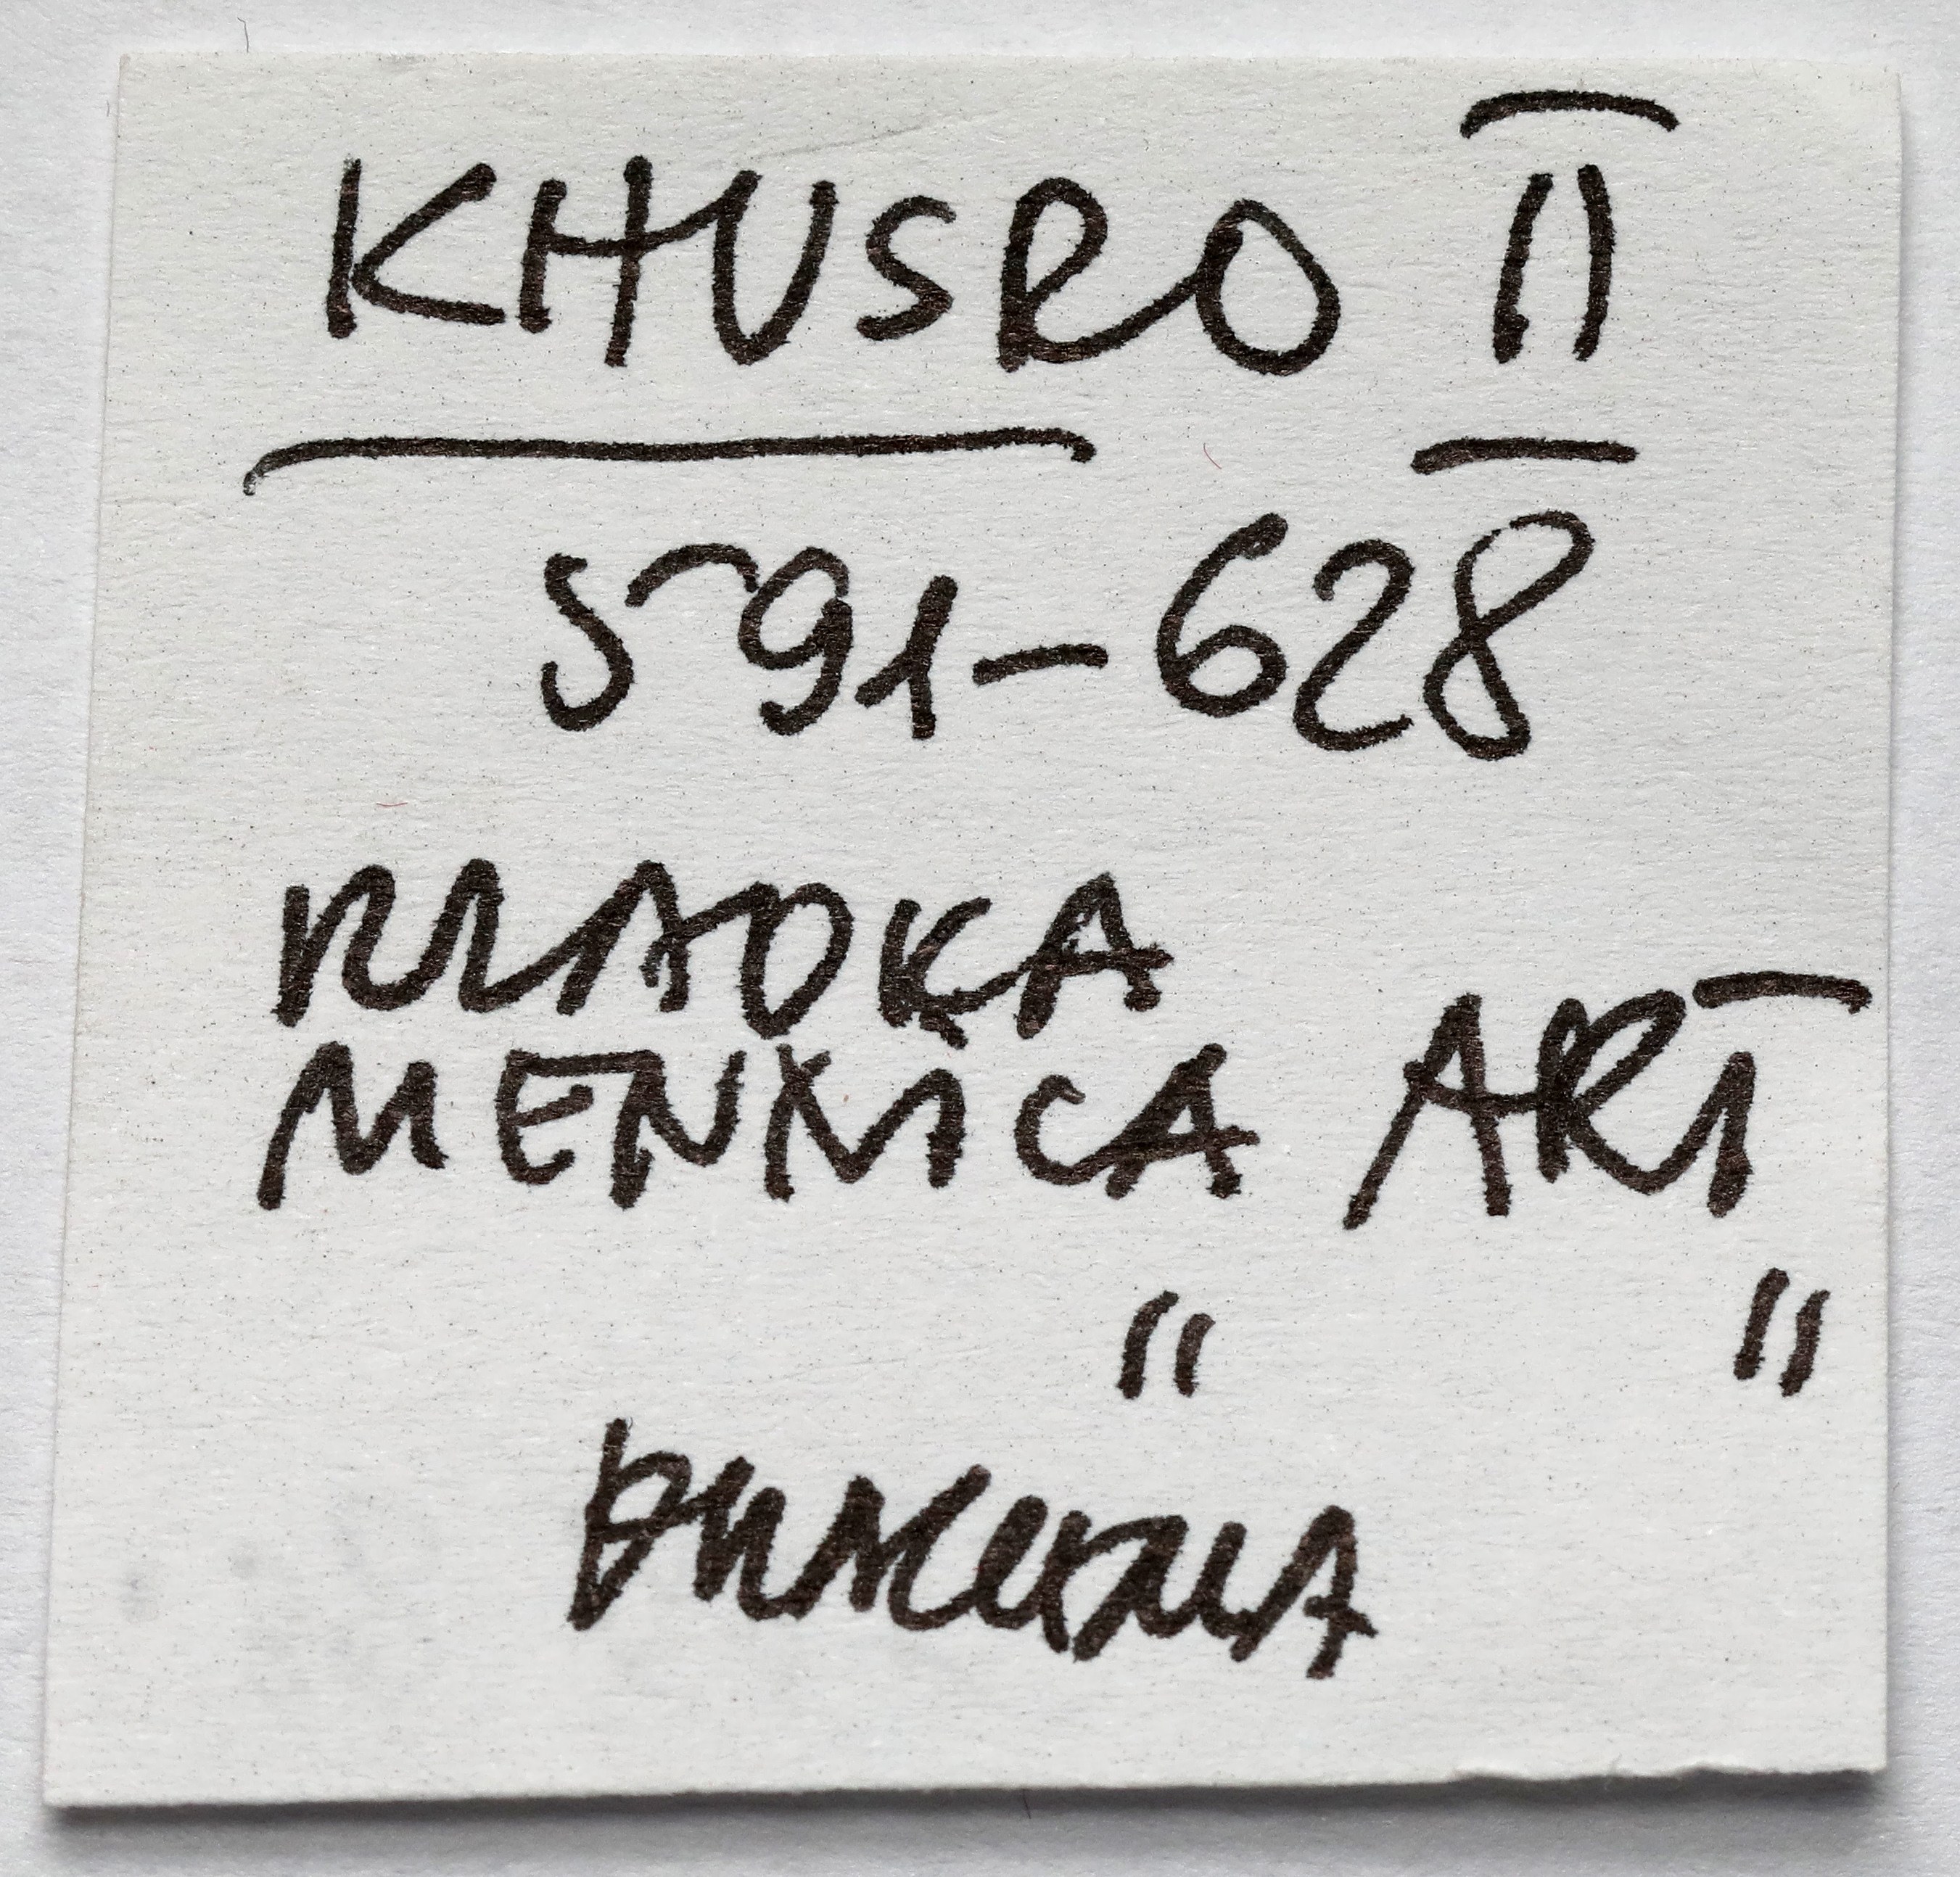 KHUSRO II
591-628
RZADKA
MENNICA ART
" "